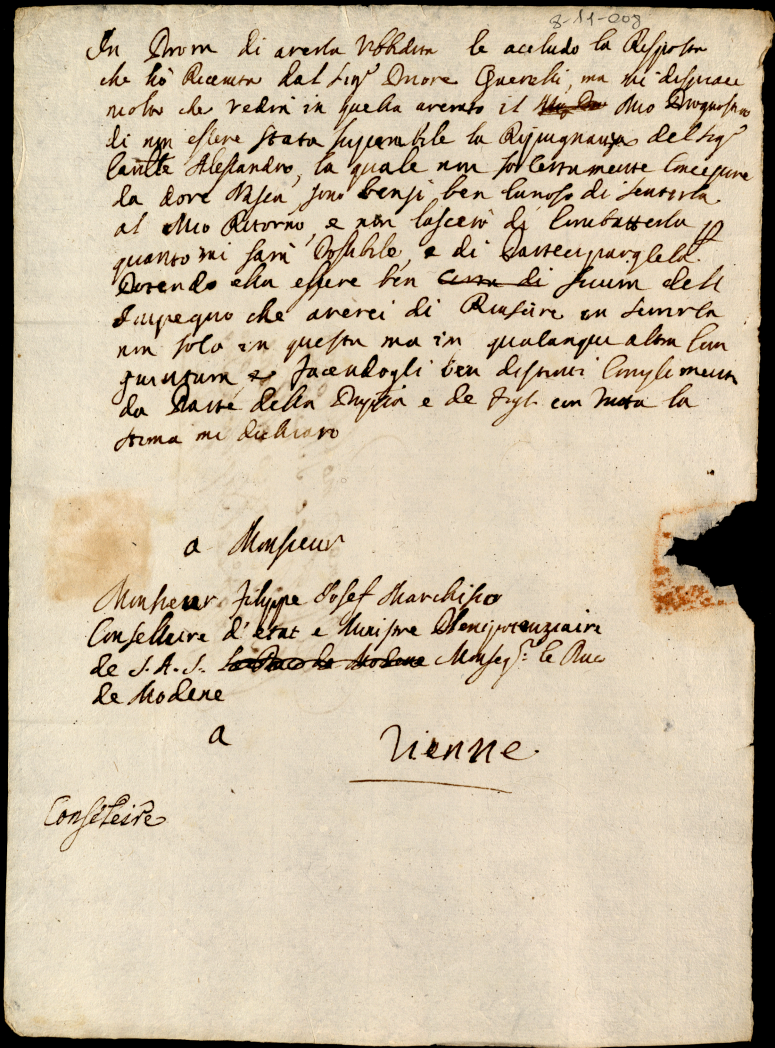 8-11-008
In Prova di averla Vbbidita le acchudo la Risposta
che hò Riceuuta dal Sig.r Guerchi, ma mi dispiace
molto che vedrà in quella averato il Mio Prognostico
di non essere stata superabile la Ripugnanza del Sig.r
Alessandro, la quale non so certamente Concepire
da dove Nasca, sono bensì ben Curioso di sentirla
al Mio Ritorno, e non lascerò di Combatterla p
quanto mi sarà Possibile, e di Parteciparglela.
Dovendo ella essere ben certa di sicura dell
Impegno che averei di Riuscire in servirla
non solo in questa ma in qualunque altra Con
giuntura, e facendogli ben distinti Complimenti
da Parte della e de figl. con tutta la
stima mi dichiaro
a Monsieur
Monsieur Filippe Josef Marchisio
Conselliere d'etat e Ministre Plenipotenziaire
de S. A. S. Le Duc de Modene Monseg.r le Duc
de Modene
a Vienne
Conseleire